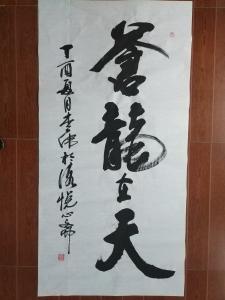 蒼龍在天
丁酉夏月李	於洛悅心齋